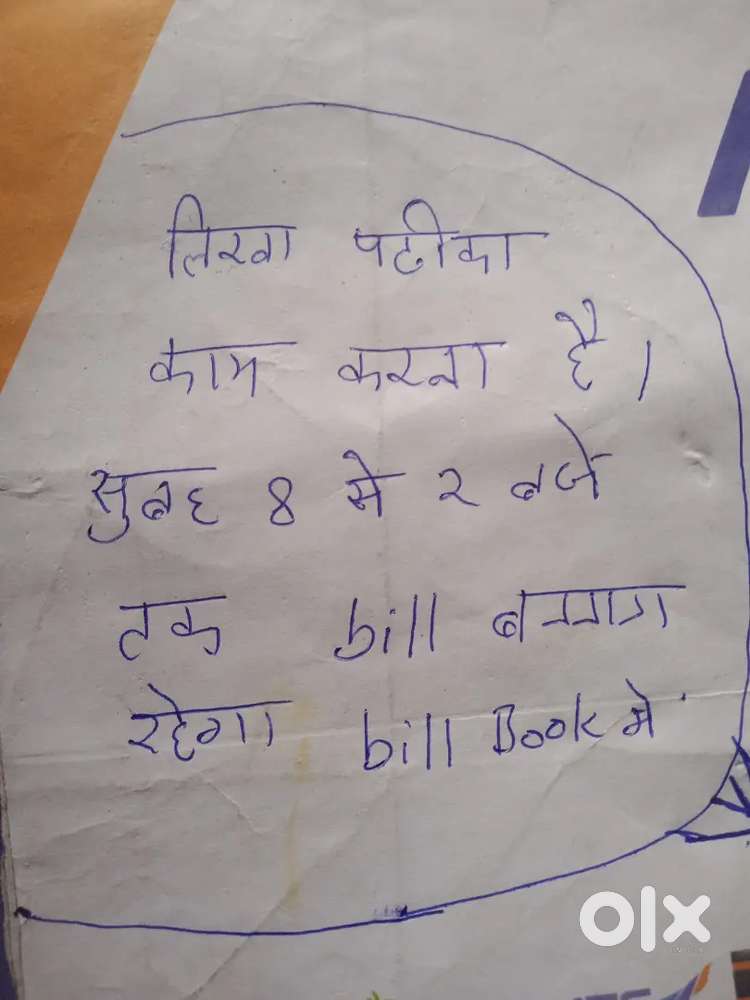 लिखा पढीका
काम करना है।
सुबह 8 से २ बजे
तक bill बनाना
रहेगा bill Book मे
olx